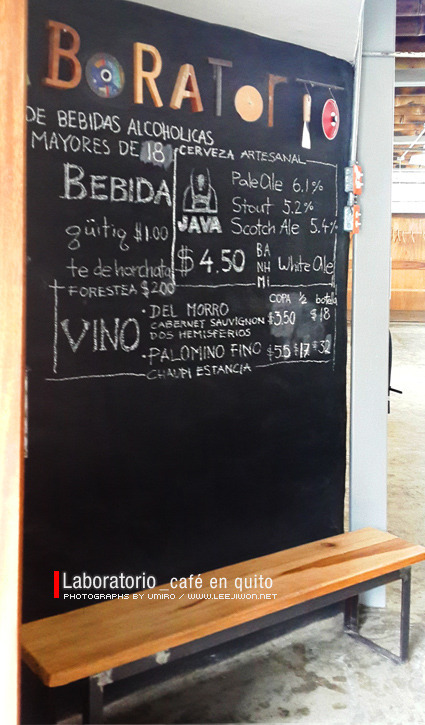 ABORATORIO
DE BEBIDAS ALCOHOLICAS
MAYORES DE 18
BEBIDA
güitig $1.00
te de horchata
FORESTEA $2.00
CERVEZA ARTESANAL
JAVA
Pale Ale 6.1%
Stout 5.2%
Scotch Ale 5.4%
$4.50
BA
NH
Mi
White Ale
VINO
COPA 1/2 botella
· DEL MORRO
CABERNET SAUVIGNON $3.50 $18
DOS HEMISFERIOS
· PALOMINO FINO $5.5 $17 $32
CHAUPI ESTANCIA
Laboratorio_ café en quito
PHOTOGRAPHS BY UMIRO / WWW.LEEJIWON.NET